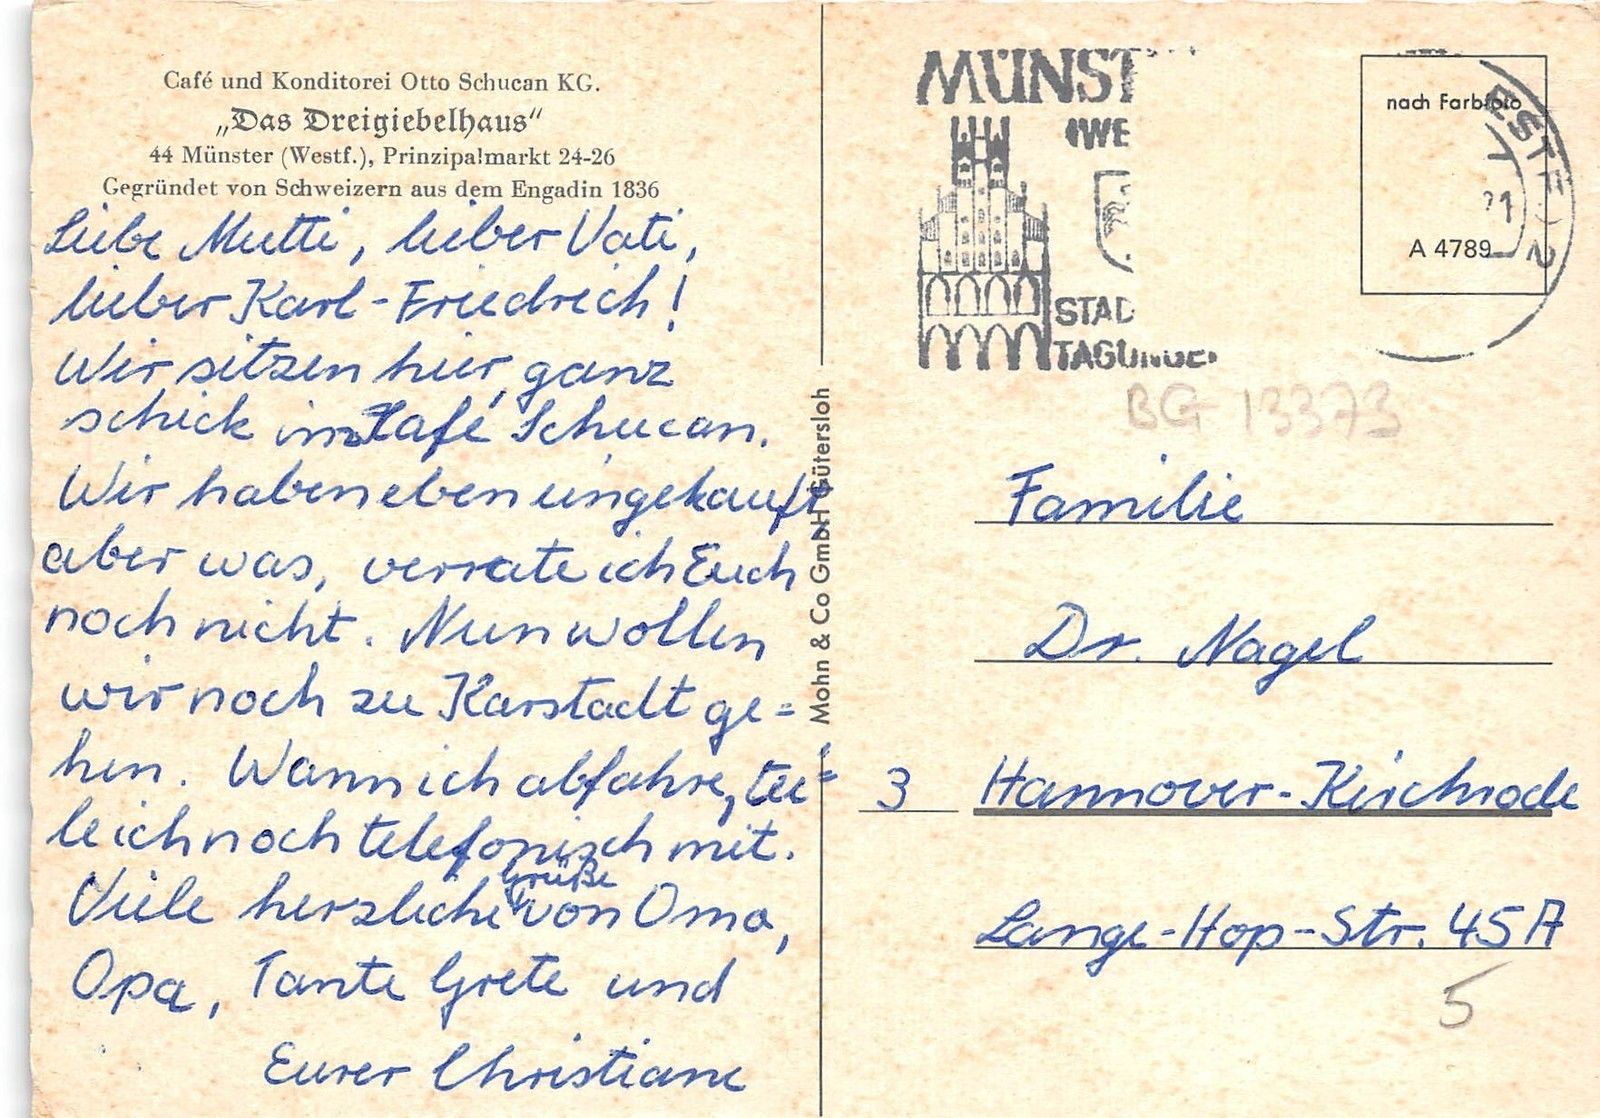 Café und Konditorei Otto Schucan KG.
„Das Dreigiebelhaus“
44 Münster (Westf.), Prinzipalmarkt 24-26
Gegründet von Schweizern aus dem Engadin 1836
Liebe Mutti, lieber Vati,
lieber Karl-Friedrich!
Wir sitzen hier, ganz
schick im Café Schucan.
Wir haben eben eingekauft
aber was, verrate ich Euch
noch nicht. Nun wollen
wir noch zu Karstadt ge=
hen. Wann ich abfahre, tei=
le ich noch telefonisch mit.
Viele herzliche Grüße von Oma,
Opa, Tante Grete und
Eurer Christiane
Mohn & Co GmbH Gütersloh
MÜNST
(WE
STAD
TAGUNGE
nach Farbfoto
A 4789
ESTF.) 2
BG 13373
Familie
Dr. Nagel
3 Hannover-Kirchrode
Lange-Hop-Str. 45A
5